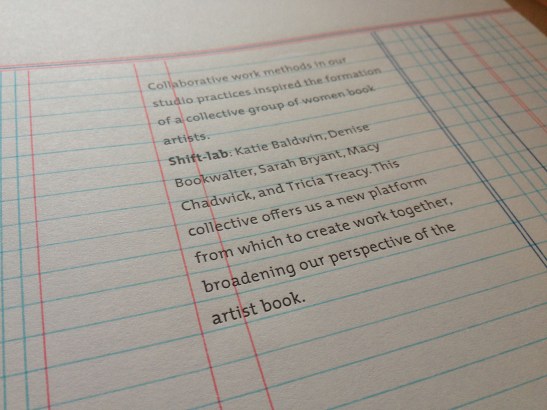 Collaborative work methods in our
studio practices inspired the formation
of a collective group of women book
artists.
Shift-lab: Katie Baldwin, Denise
Bookwalter, Sarah Bryant, Macy
Chadwick, and Tricia Treacy. This
collective offers us a new platform
from which to create work together,
broadening our perspective of the
artist book.